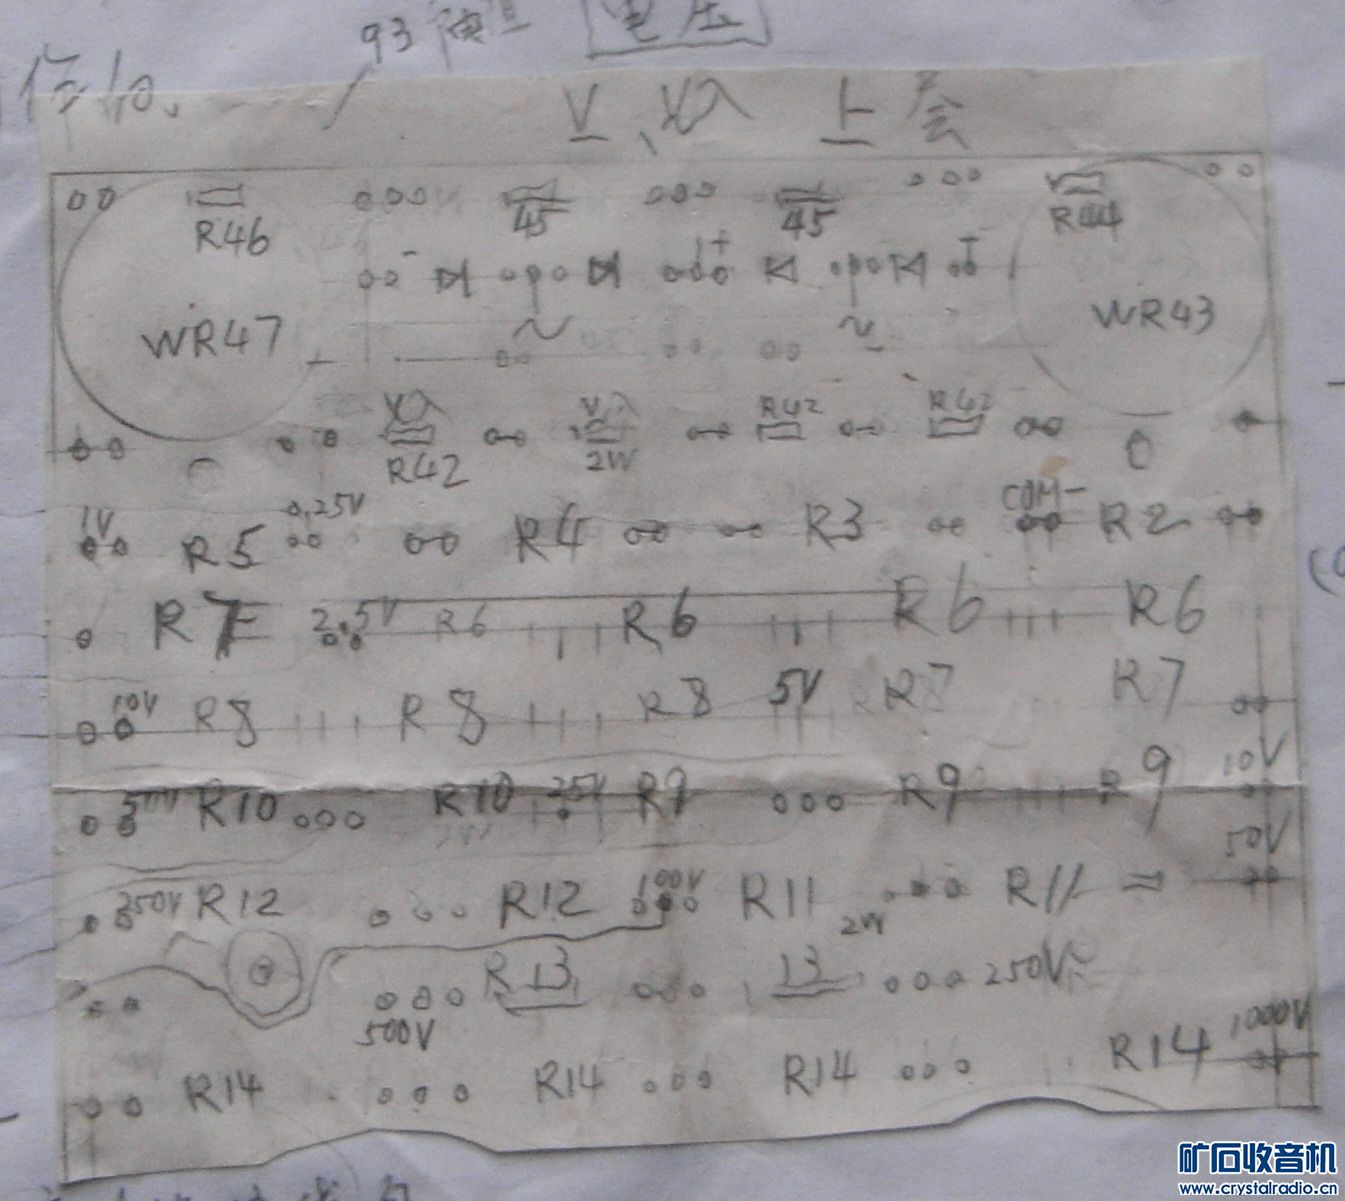 93 电压
V
R46 45 45 R44
- + +
WR47 ~ ~ WR43
R42 2W R42 R42
1V R5 0.25V R4 R3 COM- R2
R7 2.5V R6 R6 R6 R6
10V R8 R8 R8 5V R7 R7
R10 R10 25V R9 R9 R9 10V
2W
250V R12 R12 100V R11 2W R11 50V
R13 13 250V
500V
R14 R14 R14 R14 1000V
矿石收音机
www.crystalradio.cn